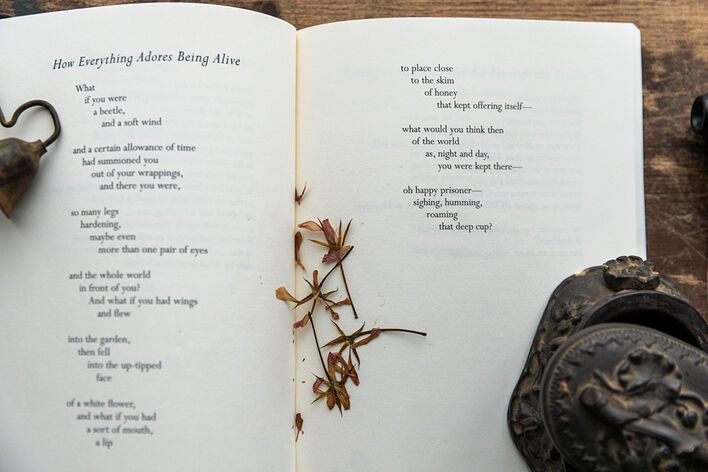 How Everything Adores Being Alive
What
if you were
a beetle,
and a soft wind
and a certain allowance of time
had summoned you
out of your wrappings,
and there you were,
so many legs
hardening,
maybe even
more than one pair of eyes
and the whole world
in front of you?
And what if you had wings
and flew
into the garden,
then fell
into the up-tipped
face
of a white flower,
and what if you had
a sort of mouth,
a lip
to place close
to the skim
of honey
that kept offering itself—
what would you think then
of the world
as, night and day,
you were kept there—
oh happy prisoner—
sighing, humming,
roaming
that deep cup?